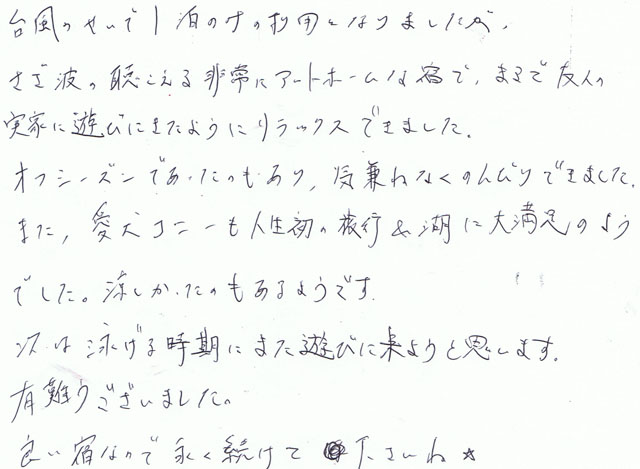 台風のせいで1泊のみの利用となりましたが、
さざ波の聴こえる非常にアートホームな宿で、まるで友人の
実家に遊びにきたようにリラックスできました。
オフシーズンであったのもあり、気兼ねなくのんびりできました。
また、愛犬コニーも人生初の旅行&湖に大満足のよう
でした。涼しかったのもあるようです。
次は泳げる時期にまた遊びに来ようと思います。
有難うございました。
良い宿なので永く続けて下さいね☆